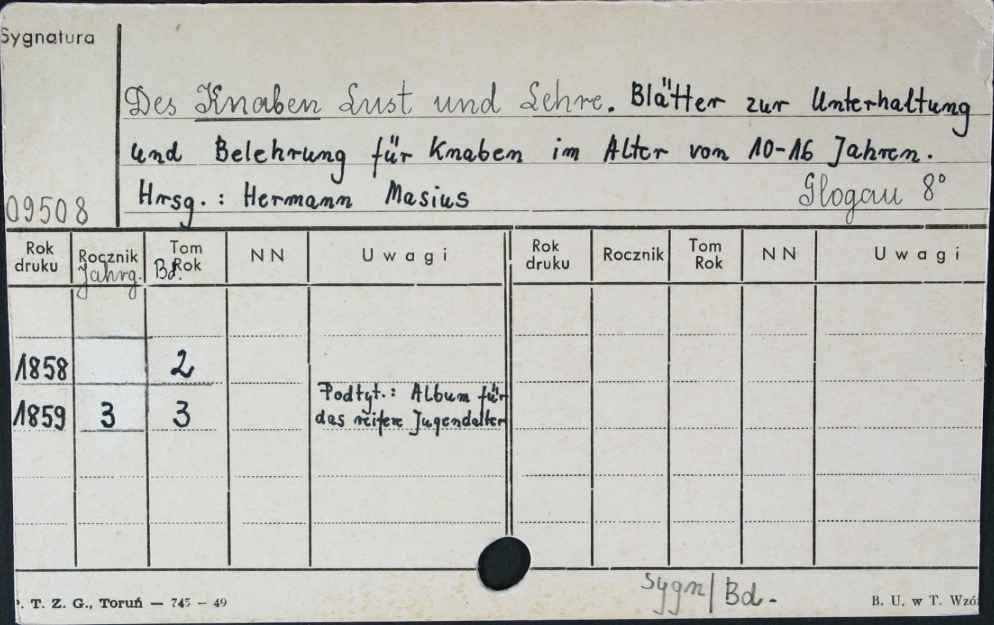 Sygnatura
Des Knaben Lust und Lehre. Blätter zur Unterhaltung
und Belehrung für Knaben im Alter von 10-16 Jahren.
Hrsg.: Hermann Masius Glogau 8°
09508
Rok druku Rocznik Jahrg. Tom Rok Bd. NN Uwagi Rok druku Rocznik Tom Rok NN Uwagi
1858 2
1859 3 3 Podtyt.: Album für
das reifere Jugendalter
Sygn/Bd.
. T. Z. G., Toruń — 745 - 49 B. U. w T. Wzó